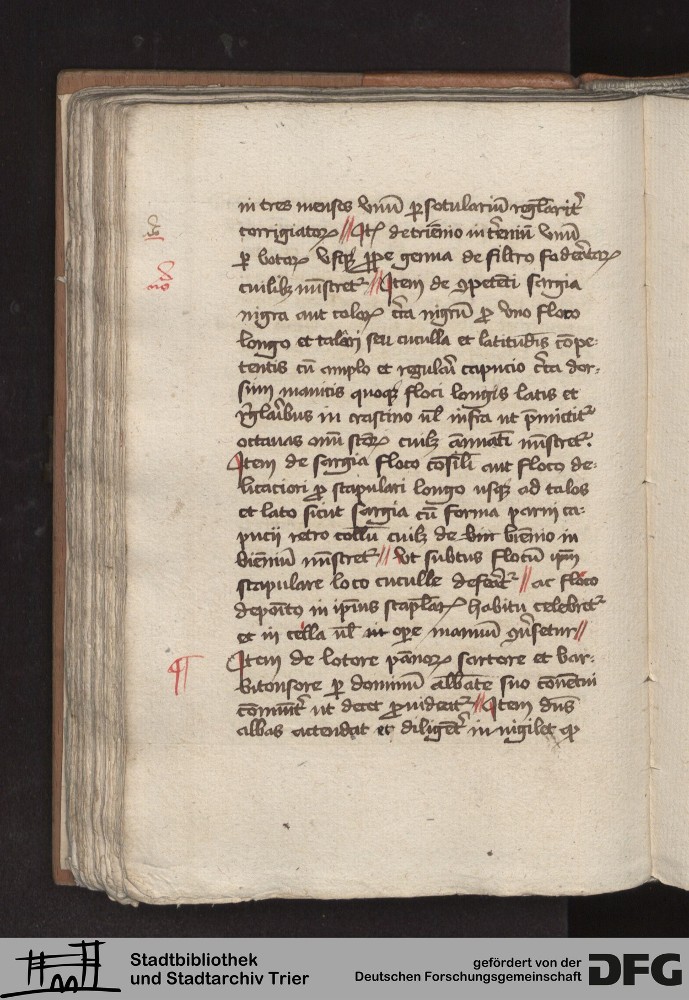 in tres menses vnū p̄ sotulariū reglarit᷑
corrigiatoꝝ // Itꝫ de triēnio in t̄eniū vnū
ꝑ botoꝝ vsqꝫ ꝓpe genua de filtro foderatoꝝ
cuilibꝫ mīstret᷑ // Item de ꝯpetēti sargia
nigra aut coloꝝ c̄ca nigrū ꝓ vno floco
longo et talāri seu cuculla et latitudīs cōpe-
tentis cū amplo et regulāi capucio c̄ca dor-
sum manicis quoqꝫ floci longis latis et
r̄glaībus in crastino ul̄ infra ut p̄mittit᷑
octauas om̄ sc̄oꝝ cuilꝫ ānuati mīstret᷑.
Item de sargia floco cōsil̄i aut floco de-
licaciori ꝓ scapulari longo usqꝫ ad talos
et lato sicut sargia cū forma parui ca-
pucii retro collū cuilꝫ de biēnio in
biēniū mīstret᷑ // vt subtus flocū ip̄m
scapulare loco cuculle deferat᷑ // ac floco
deposito in ip̄ius scaplaꝝ habitu celebret᷑
et in cella ul̄ in oꝑe manuū ꝯūsetur //
¶ Item de lotore pānoꝝ sartore et bar-
bitonsore ꝑ dominū abbate suo conuētui
cōmuīt᷑ ut decet ꝓuideat᷑ // Item dn̄s
abbas attendat et diligēt᷑ inuigilet ꝙ
Stadtbibliothek
und Stadtarchiv Trier
gefördert von der
Deutschen Forschungsgemeinschaft
DFG